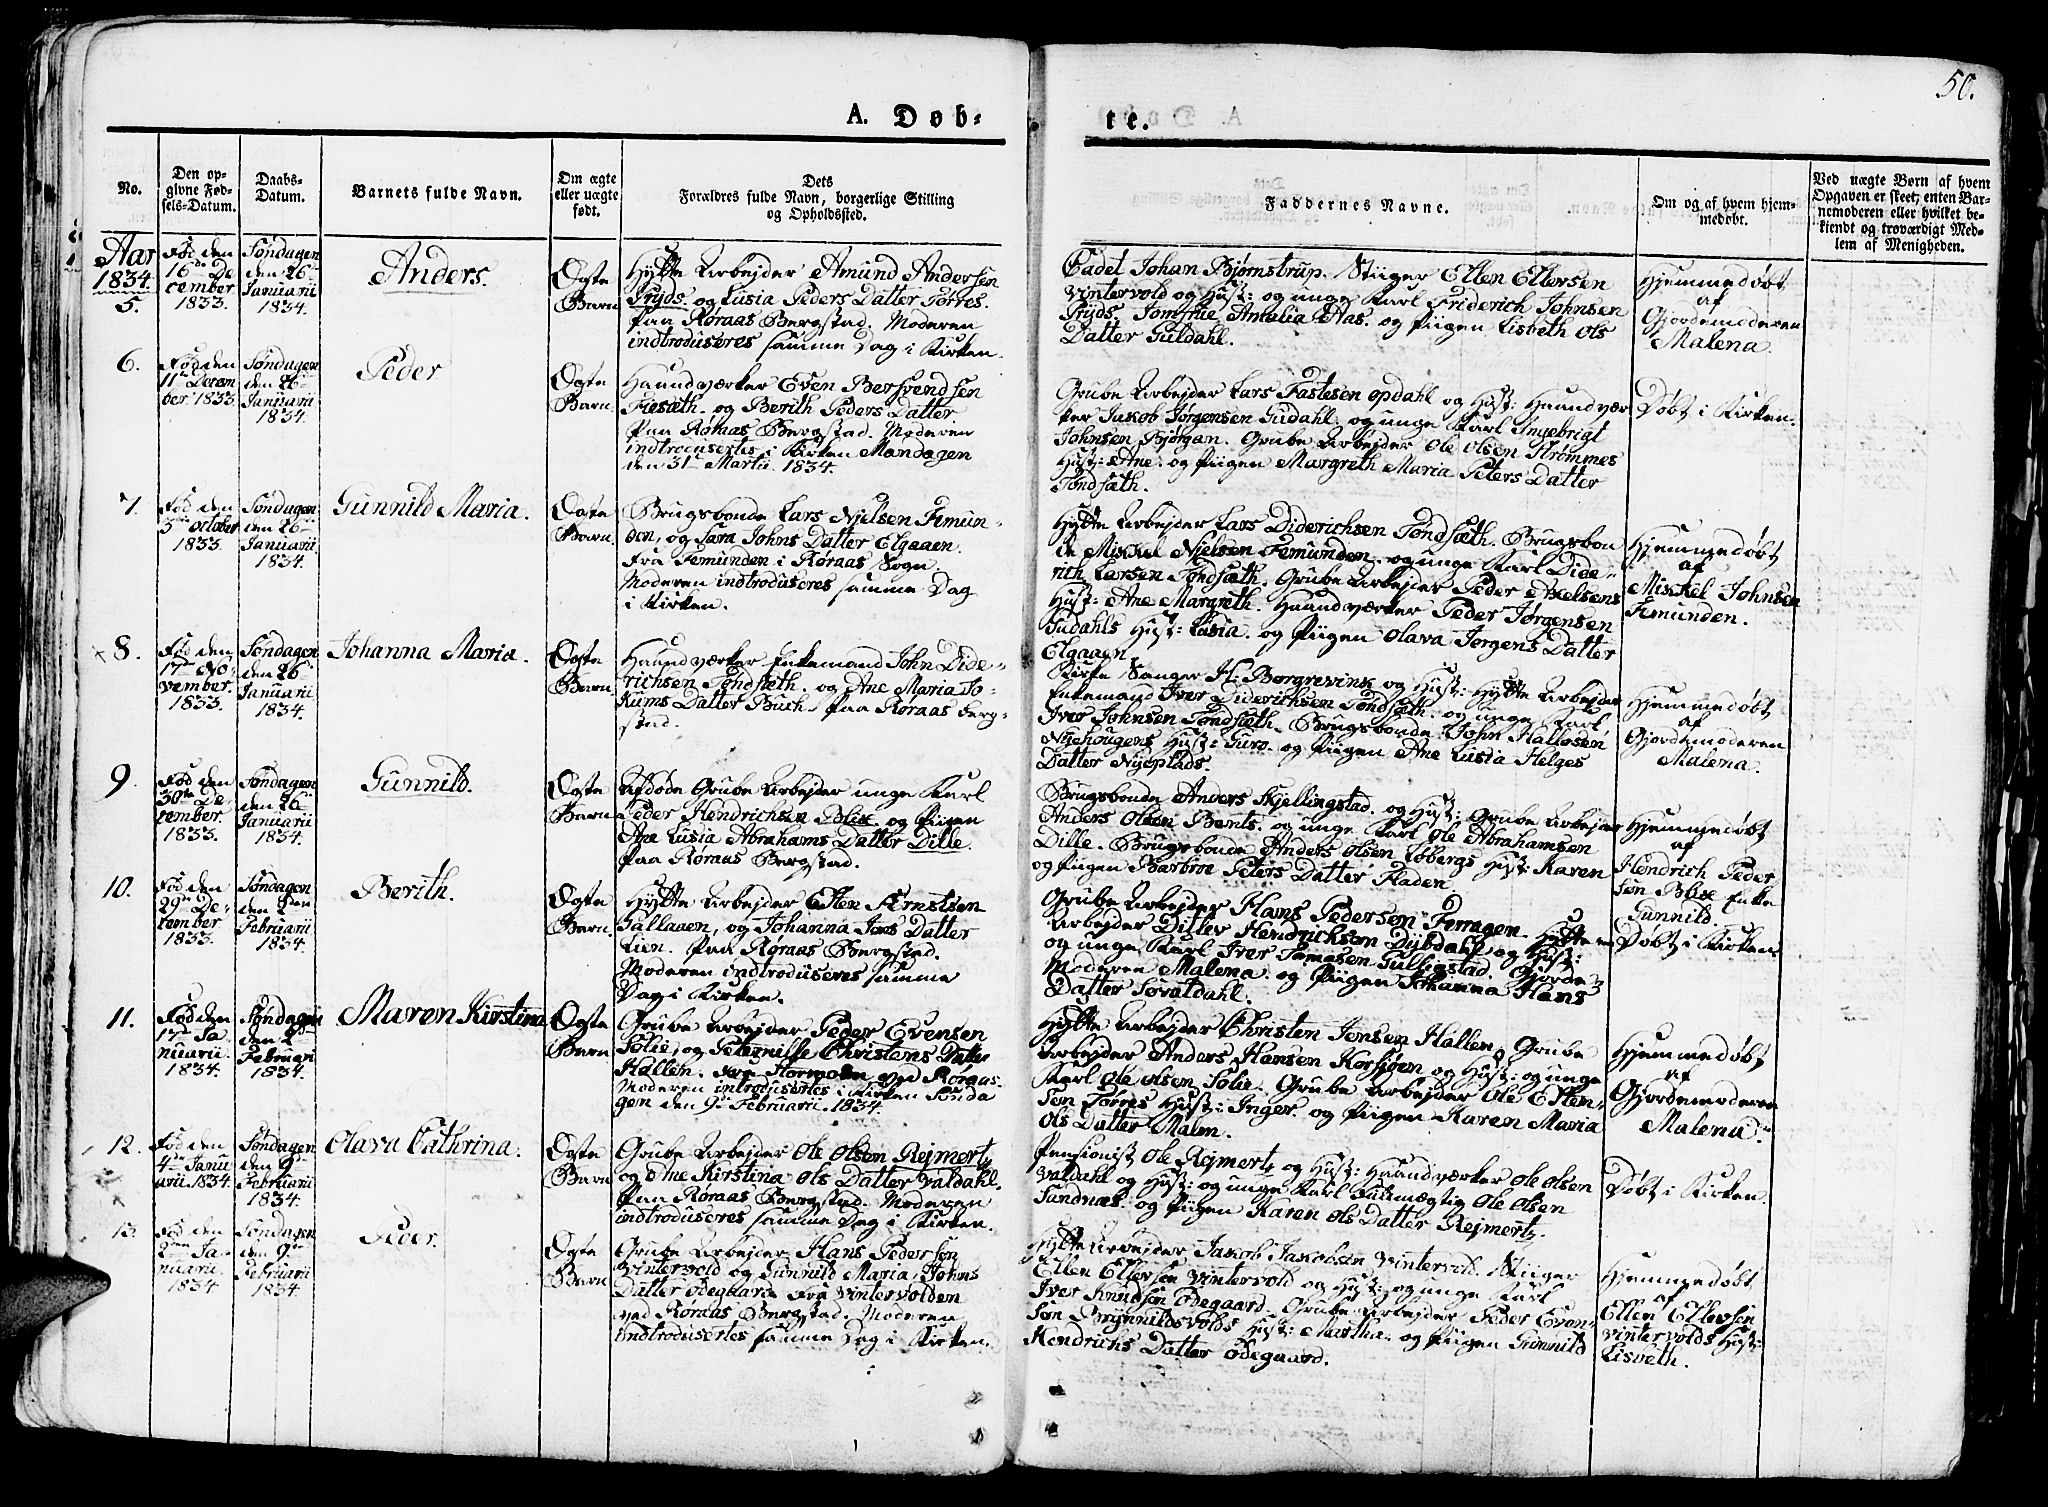 50.
A. Døb-
te.
No.
Den op-
givne Fød-
sels-Datum.
Daabs-
Datum.
Barnets fulde Navn.
Om ægte
eller uægte
født.
Dets
Forældres fulde Navn, borgerlige Stilling
og Opholdssted.
Faddernes Navne.
Om og af hvem hjem-
medøbt.
Ved uægte Børn af hvem
Opgaven er skeet; enten Bar-
nemoderen eller hvilket be-
kiendt og troværdigt Med-
lem af Menigheden.
Aar
1834.
5.
Fød den
16de De
cember
1833.
Søndagen
den 26de
Januarii
1834.
Anders.
Ægte
Barn.
Hytte Arbejder Amund Andersen
Pryds. og Lusia Peders Datter Torres.
paa Røraas Bergstad. Moderen
indtroduseres samme Dag i Kirken.
Cadet Johan Bjørnstrup. Stiiger Ellen Ellersen
Vintervold og Hust: og unge Karl Friderich Johnsen
Pryds. Jomfrue Amalia Aas. og Piigen Lisbeth Ols
Datter Guldahl.
Hjemmedøbt
af
Gjordemoderen
Malena.
6.
Fød den
11te Decem
ber 1833.
Søndagen
den 26de
Januarii
1834.
Peder
Ægte
Barn.
Haandværker Even Bersvendsen
Fiesæth. og Berith Peders Datter
paa Røraas Bergstad. Moderen
indtrodusertes i Kirken Mandagen
den 31te Martii 1834.
Grube Arbejder Lars Fastesen Opdahl og Hust: Haandvær
ker Jakob Jørgensen Sudahl. og unge Karl Ingebrigt
Johnsen Bjørgan. Grube Arbejder Ole Olsen Strømmes
Hust: Ane. og Piigen Margreth Maria Peters Datter
Tøndsæth.
Døbt i Kirken.
7.
Fød den
3die October
1833.
Søndagen
den 26de
Januarii
1834.
Gunnild Maria.
Ægte
Barn.
Brugsbonde Lars Njelsen Femun-
den, og Sara Johns Datter Elgaaen.
fra Femunden i Røraas Sogn.
Moderen indtroduseres samme Dag
i Kirken.
Hytte Arbejder Lars Diderichsen Tøndsæth. Brugsbon
de Mikkel Njelsen Femunden. og unge Karl Dide-
rich Larsen Tøndsæth. Grube Arbejder Peder Axelsens
Hust: Ane Margreth. Haandværker Peder Jørgensen
Sudahls Hust: Lusia. og Piigen Olava Jørgens Datter
Elgaaen.
Hjemmedøbt
af
Mikkel Johnsen
Femunden.
8.
Fød den
17de No
vember.
1833.
Søndagen
den 26de
Januarii
1834.
Johanna Maria.
Ægte
Barn.
Haandværker Enkemand John Dide-
richsen Tøndsæth. og Ane Maria Jo-
kums Datter Buch. paa Røraas Berg-
stad.
Kirke Sanger H: Borgrevink og Hust: Hytte Arbejder
Enkemand Iver Diderichsen Tøndsæth. og unge Karl
Iver Johnsen Tøndsæth. Brugsbonde John Halvosen
Nyehougens Hust: Guro. og Piigen Ane Lusia Helges
Datter Nyeplads.
Hjemmedøbt
af
Gjordemoderen
Malena.
9.
Fød den
30te De-
cember.
1833.
Søndagen
den 26de
Januarii
1834.
Gunnild.
Ægte
Barn.
Afdøde Grube Arbejder unge Karl
Peder Hendrichsen Blix og Piigen
Ane Lusia Abrahams Datter Dille.
paa Røraas Bergstad.
Brugsbonde Anders Skjellingstad. og Hust: Grube Arbejder
Anders Olsen Bents. og unge Karl Ole Abrahamsen
Dille. Brugsbonde Anders Olsen Løbergs Hust: Karen
og Piigen Barbroe Peters Datter Fladen.
Hjemmedøbt
af
Hendrich Peder
sen Blix Enke
Gunnild.
10.
Fød den
29de De-
cember
1833.
Søndagen
den 2den
Februarii
1834.
Berith.
Ægte
Barn.
Hytte Arbejder Ellen Arntsen
Gallaaen, og Johanna Jons Datter
Lien. paa Røraas Bergstad.
Moderen indtroduseres samme
Dag i Kirken.
Grube Arbejder Hans Pedersen Ferragen. Hytte
Arbejder Ditlev Hendrichsen Dybdahl og Hust:
og unge Karl Iver Tamesen Gulligstad. Gjorde-
moderen Malena. og Piigen Johanna Hans
Datter Sovatdahl.
Døbt i Kirken
11.
Fød den
17de Ja
nuarii.
1834.
Søndagen
den 2den
Februari
1834.
Maren Kirstina
Ægte
Barn
Grube Arbejder Peder Evensen
Solie, og Peternille Christens Datter
Hallen. fra Stormoen ved Røraas.
Moderen introdusertes i Kirken Sønda
gen den 9de Februarii. 1834.
Hytte Arbejder Christen Jensen Hallen. Grube
Arbejder Anders Hansen Korssjøen og Hust: og unge
Karl Ole Olsen Solie. Grube Arbejder Ole Ellen-
sen Torres Hust: Inger. og Piigen Karen Maria
Ols Datter Malm.
Hjemmedøbt
af
Gjordemoderen
Malena.
12.
Fød den
4de Janu
arii. 1834.
Søndagen
den 9de
Februarii
1834.
Olava Cathrina.
Ægte
Barn
Grube Arbejder Ole Olsen Rejmertz
og Ane Kirstina Ols Datter Valdahl.
paa Røraas Bergstad. Moderen
indtroduseres samme Dag i Kirken.
Pensionist Ole Rejmertz og Hust: Haandværker Ole Olsen
Valdahl og Hust: og unge Karl Fulmægtig Ole Olsen
Sundnæs. og Piigen Karen Ols Datter Rejmertz.
Døbt i Kirken.
13.
Fød den
2den Ja-
nuarii.
1834
Søndagen
den 9de
Februarii
1834
Peder.
Ægte
Barn
Grube Arbejder Hans Pedersen
Vintervold og Gunnild Maria Johns
Datter Ødegaard fra Vintervolden
ved Røraas Bergstad. Moderen
indtrodusertes samme Dag i Kirken.
Hytte Arbejder Jakob Jakobsen Vintervold. Stiiger
Ellen Ellevsen Vintervold og Hust: og unge Karl
Iver Knudsen Ødegaard. Grube Arbejder Peder Even-
sen Brynnildsvolds Hust: Martha. og Piigen Gunnild
Hendrichs Datter Ødegaard.
Hjemmedøbt
af
Ellen Ellevsen
Vintervolds Hust:
Lisbeth.